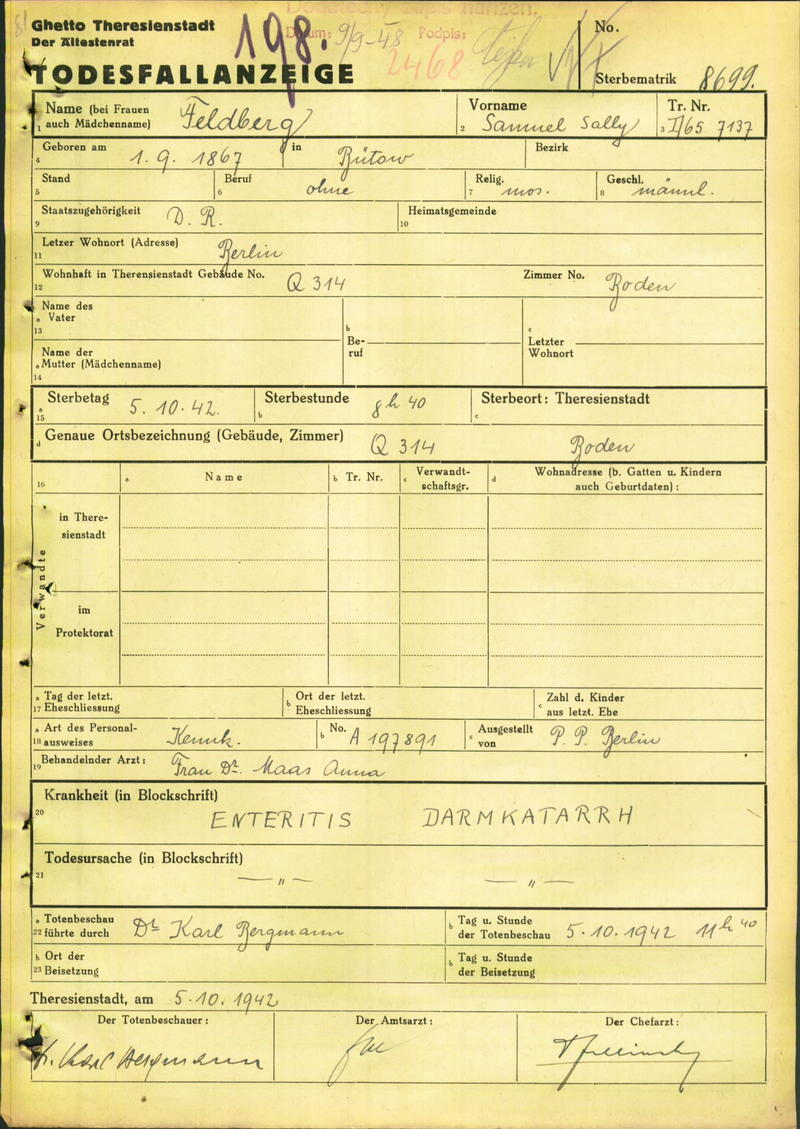 Ghetto Theresienstadt
Der Ältestenrat
198.
Datum: 9/9-48 Podpis:
2468
No.
TODESFALLANZEIGE
Sterbematrik 8699.
Name (bei Frauen auch Mädchenname) Feldberg
Vorname Samuel Sally
Tr. Nr. I/65 7137
1 2 3
Geboren am 1. 9. 1867 in Bütow Bezirk
4
Stand Beruf ohne Relig. mos. Geschl. männl.
5 6 7 8
Staatszugehörigkeit D. R. Heimatsgemeinde
9 10
Letzer Wohnort (Adresse) Berlin
11
Wohnhaft in Therensienstadt Gebäude No. Q 314 Zimmer No. Boden
12
Name des
a Vater
13
b Be-
ruf
c Letzter
Wohnort
Name der
a Mutter (Mädchenname)
14
Sterbetag 5. 10. 42. Sterbestunde 8 h 40 Sterbeort: Theresienstadt
a 15 b c
d Genaue Ortsbezeichnung (Gebäude, Zimmer) Q 314 Boden
16 a Name b Tr. Nr. c Verwandt-
schaftsgr. d Wohnadresse (b. Gatten u. Kindern
auch Geburtdaten) :
Verwandte
in There-
sienstadt
im
Protektorat
a Tag der letzt.
17 Eheschliessung
b Ort der letzt.
Eheschliessung
c Zahl d. Kinder
aus letzt. Ehe
a Art des Personal-
18 ausweises Kennk.
b No. A 197891
c Ausgestellt
von P. P. Berlin
19 Behandelnder Arzt: Frau Dr. Maas Anna
Krankheit (in Blockschrift)
20
ENTERITIS DARMKATARRH
Todesursache (in Blockschrift)
21
— " — — " —
a Totenbeschau
22 führte durch Dr. Karl Bergmann
b Tag u. Stunde
der Totenbeschau 5. 10. 1942 11 h 40
b Ort der
23 Beisetzung
b Tag u. Stunde
der Beisetzung
Theresienstadt, am 5. 10. 1942
Der Totenbeschauer: Der Amtsarzt: Der Chefarzt:
Dr. Karl Bergmann